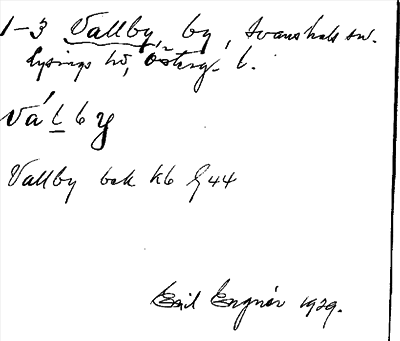 1-3 Vallby, by, Svanshals sn.
Lysings hd, Österg. l.
váḻby
Vallby bek kb G 44
Emil Engnér 1929.